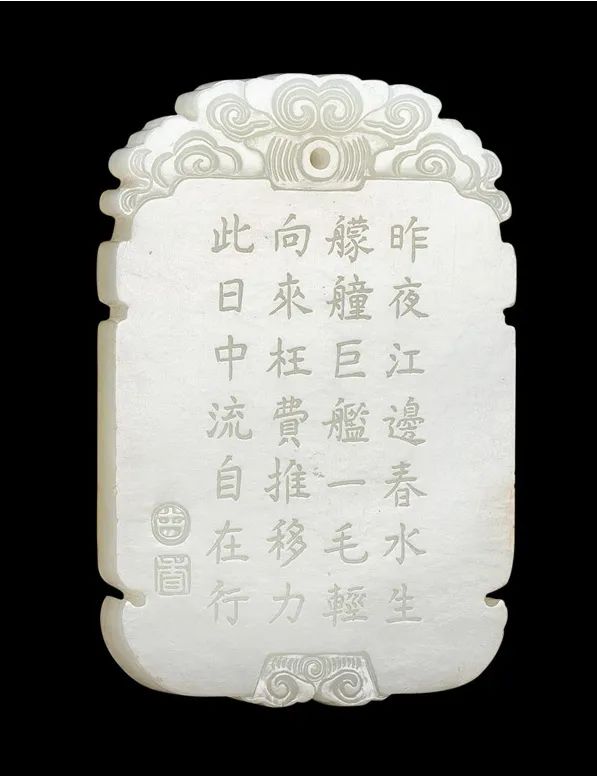 昨夜江邊春水生
艨艟巨艦一毛輕
向來枉費推移力
此日中流自在行